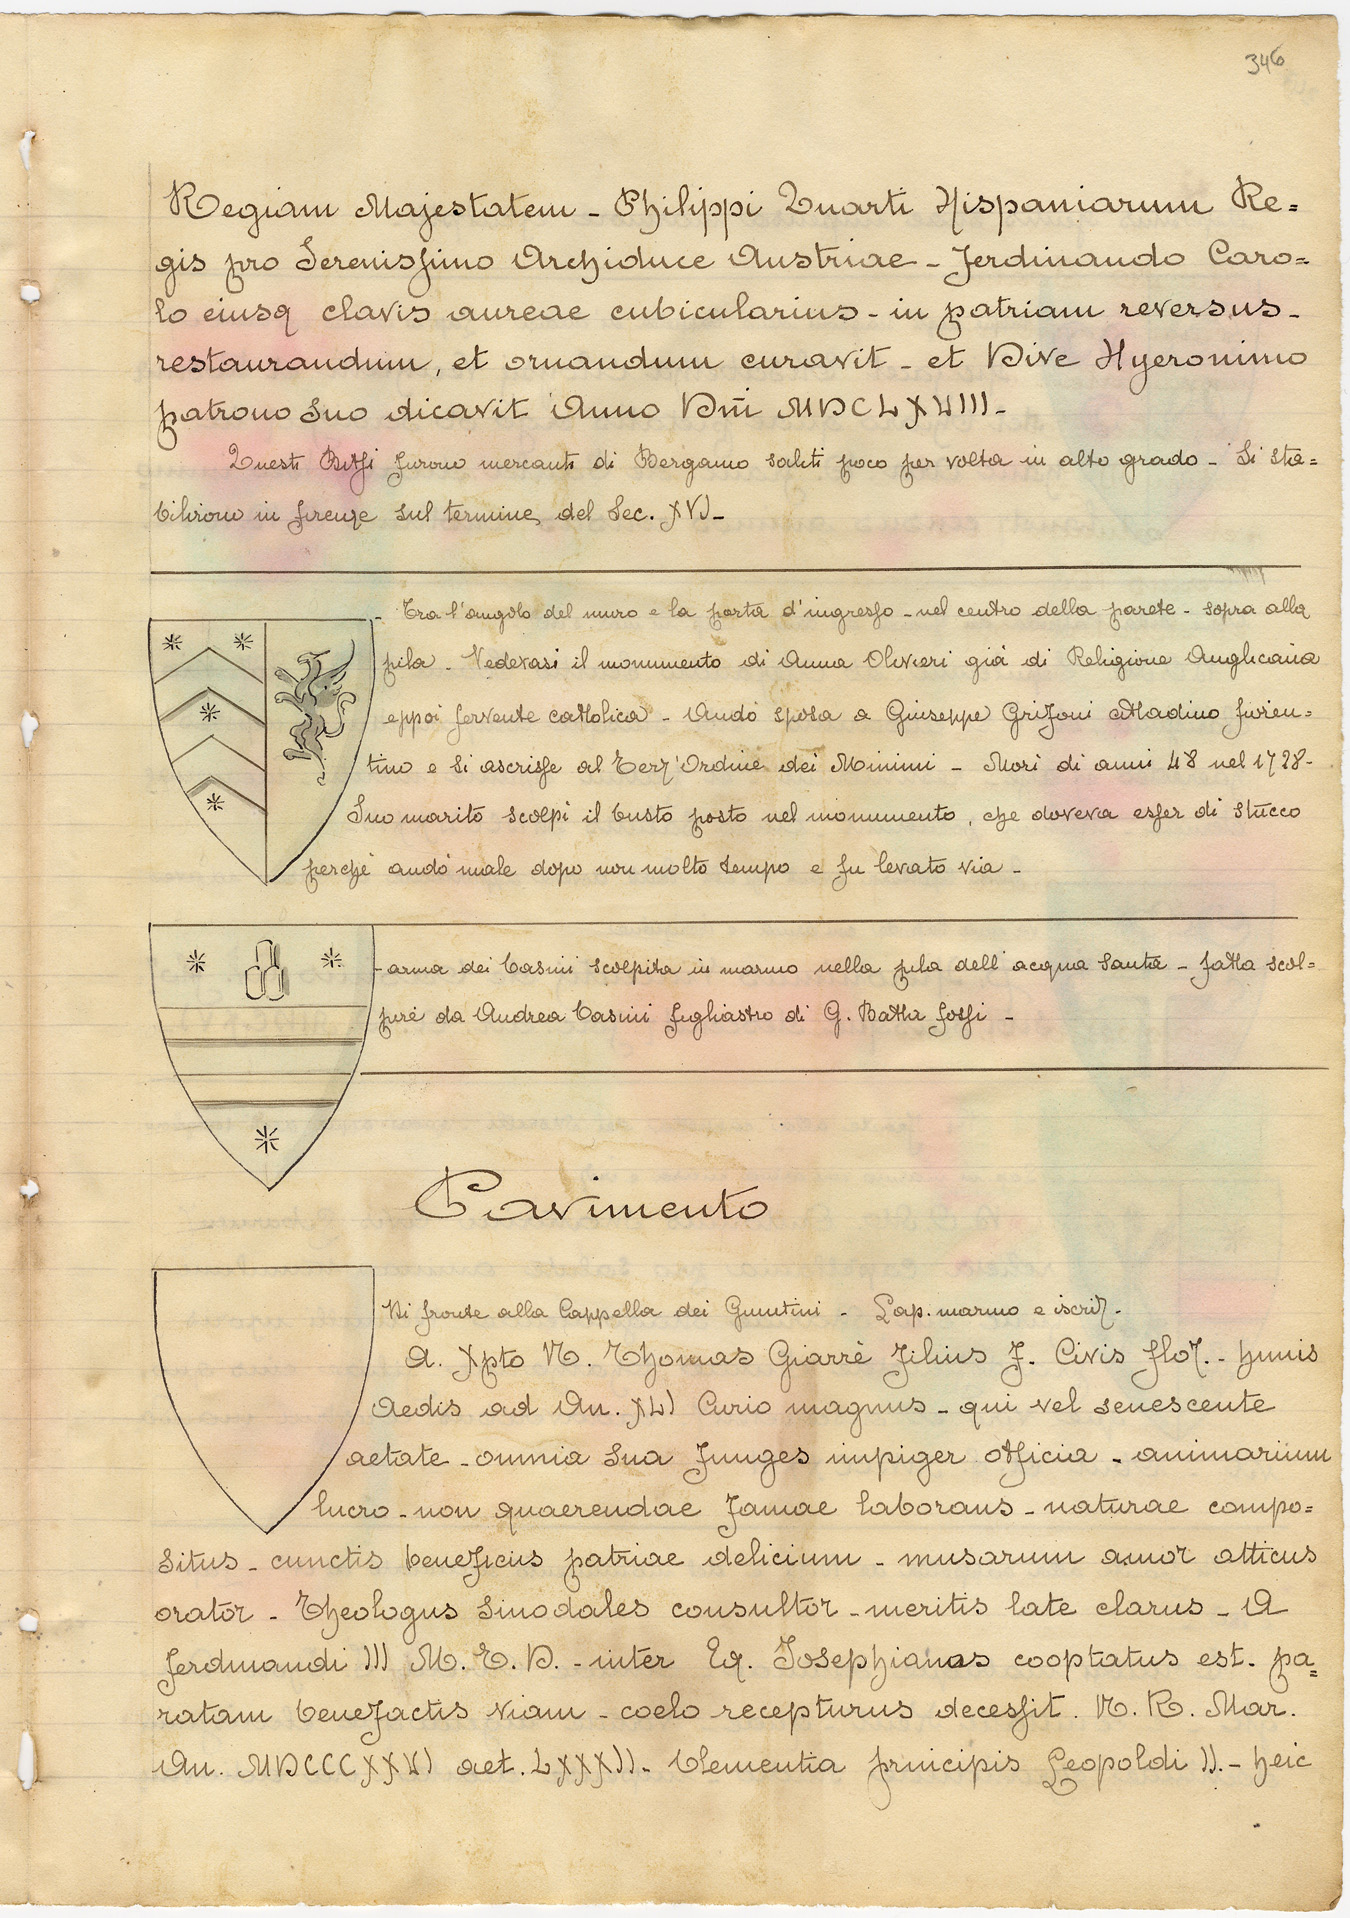 346
Regiam Majestatem - Philippi Quarti Hispaniarum Re=
gis pro Serenissimo Archiduce Austriae - Ferdinando Caro=
lo eiusq clavis aureae cubicularius - in patriam reversus -
restaurandum, et ornandum curavit - et Dive Hyeronimo
patrono suo dicavit Anno Dñi MDCLXVIII -
Questi furono mercanti di Bergamo saliti poco per volta in alto grado - Si sta=
bilirono in firenze sul termine del Sec. XVI -
- Tra l'angolo del muro e la porta d'ingresso - nel centro della parete - sopra alla
pila - Vedevasi il monumento di Anna Olivieri già di Religione Anglicana
eppoi fervente cattolica - Andò sposa a Giuseppe Grifoni cittadino fioren=
tino e si ascrisse al Terz'Ordine dei Minimi - Morì di anni 48 nel 1728 -
Suo marito scolpì il busto posto nel monumento, che doveva esser di stucco
perchè andò male dopo non molto tempo e fu levato via -
- arma dei Casini scolpita in marmo nella pila dell'acqua santa - fatta scol=
pire da Andrea Casini figliastro di G. Batta fossi -
Pavimento
Di fronte alla Cappella dei Giuntini - Lap. marmo e iscriz.
A. Xpto R. Thomas Giarrè filius F. Civis floz. - hunis
Aedis ad An. XLI Curio magnus - qui vel senescente
aetate - omnia sua funges impiger officia - animarium
lucro - non quaerendae famae laborans - naturae compo=
situs - cunctis beneficus patriae delicium - musarum amor atticus
orator - Theologus Sinodales consultor - meritis late clarus - A
ferdinandi III M. E. D. - inter Eq. Josephianos cooptatus est - pa=
ratam benefactis viam - coelo recepturus decessit. N. R. Mar.
An. MDCCCXXVI aet. LXXXII - Clementia principis Leopoldi II. - heic